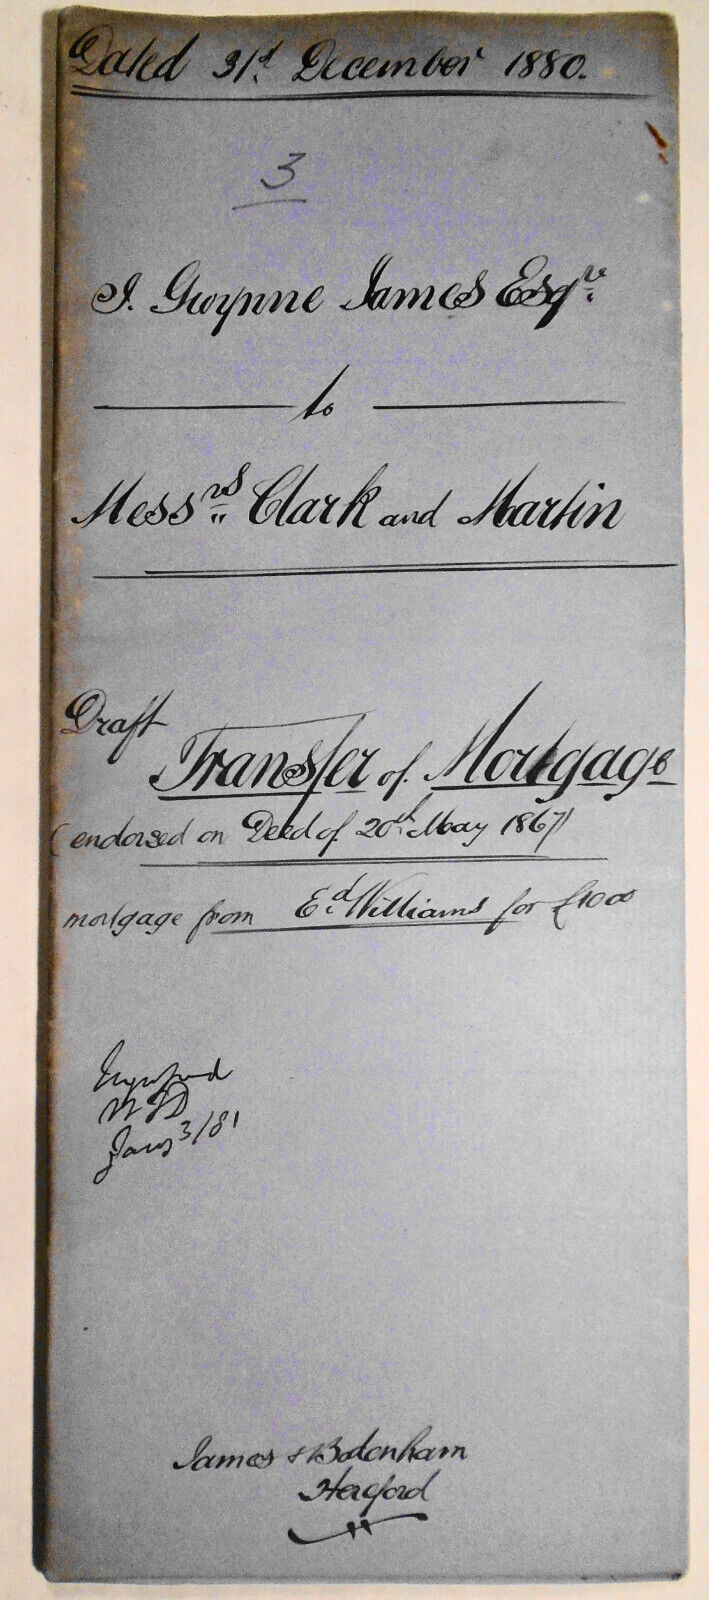 Dated 31st December 1880.
3
J. Gwynne James Esqre
to
Messrs Clark and Martin
Draft
Transfer of Mortgage
(endorsed on Deed of 20th May 1867)
mortgage from Ed Williams for £1000
Jany 3/81
James & Bodenham
Hereford